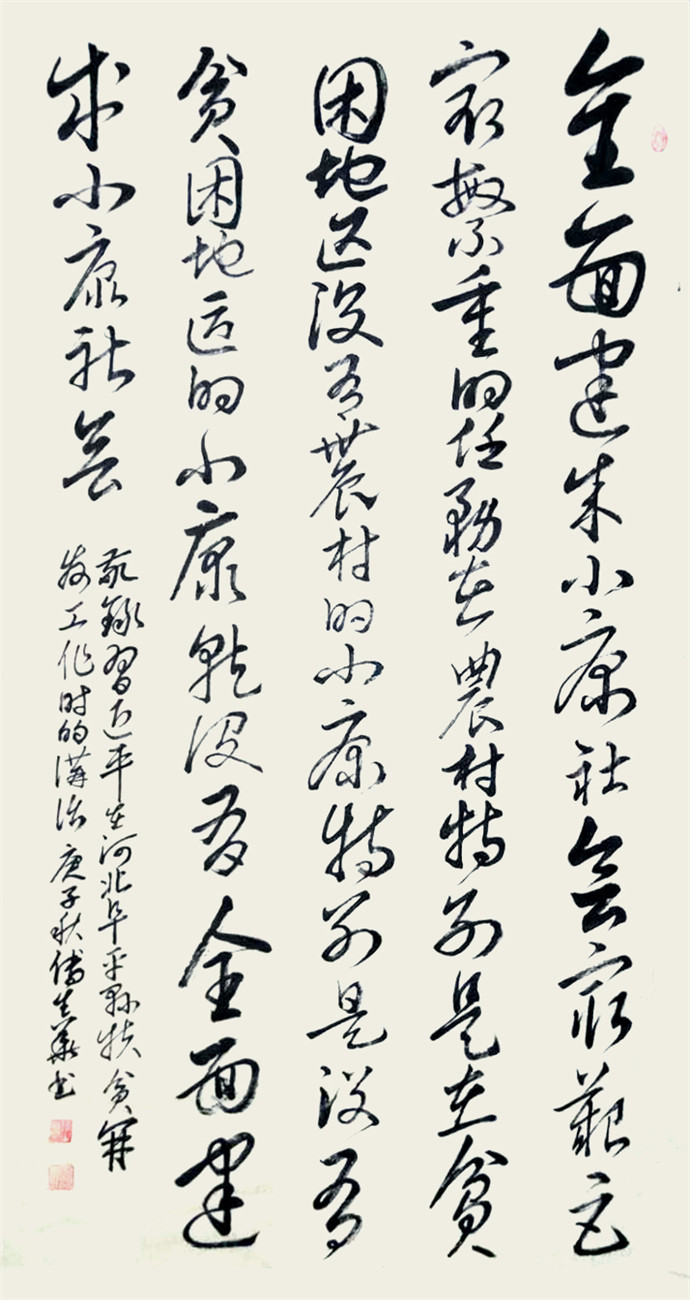 全面建成小康社会最艰巨
最繁重的任务在農村特别是在贫
困地区没有農村的小康特别是没有
贫困地区的小康就没有全面建
成小康社会
敬錄習近平在河北阜平县扶贫開
发工作时的講话庚子秋傅生華书